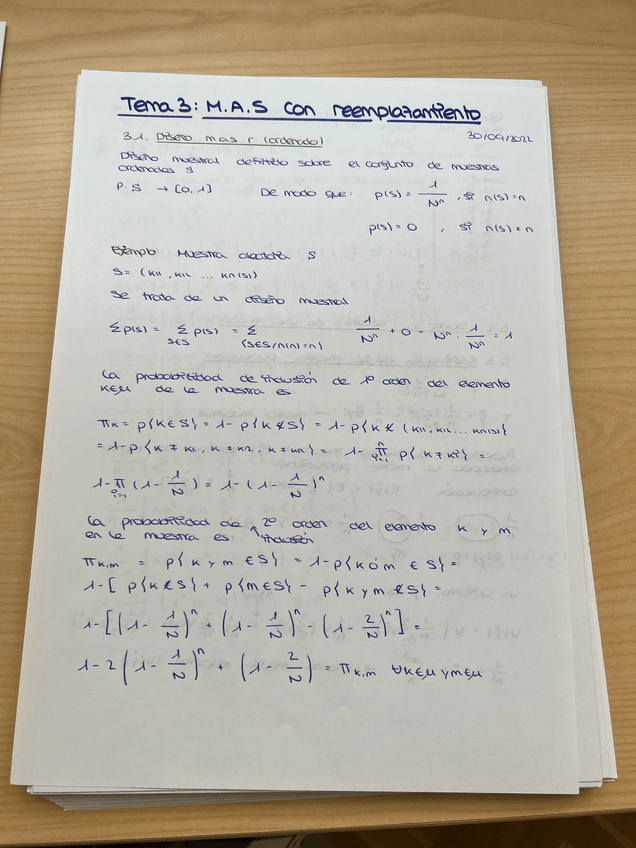 Tema 3: M.A.S con reemplazamiento
3.1. Diseño m a s r (ordenado) 30/09/2022
Diseño muestral definido sobre el conjunto de muestras
ordenadas s
P: S → [0,1] De modo que: p(s) = 1/Nⁿ , si n(s)=n
p(s) = 0 , si n(s)=n
Ejemplo: Muestra aleatoria s
S = (k1, k2, ... kn(s))
Se trata de un diseño muestral
Σp(s) = Σ_{s∈S} p(s) = Σ_{{s∈S/n(n)=n}} 1/Nⁿ + 0 = Nⁿ · 1/Nⁿ = 1
La probabilidad de inclusión de 1º orden del elemento
k∈μ de le muestra es
πk = p{k∈S} = 1-p{k∉S} = 1-p{k∉(k1, k2, ... kn(s)}
= 1-p{k≠k1, k≠k2, k≠kn} = 1- π_{i=1}^{n} p{k≠ki} =
1- π_{i=1} (1 - 1/N) = 1-(1 - 1/N)ⁿ
La probabilidad de inclusión 2º orden del elemento k y m
en le muestra es:
πk,m = p{k y m ∈ S} = 1-p{k ó m ∈ S} =
1-[p{k∉S} + p{m∈S} - p{k y m ∉S} =
1-[(1 - 1/N)ⁿ + (1 - 1/N)ⁿ - (1 - 2/N)ⁿ] =
1-2(1 - 1/N)ⁿ + (1 - 2/N) = πk,m ∀k∈μ y m∈μ